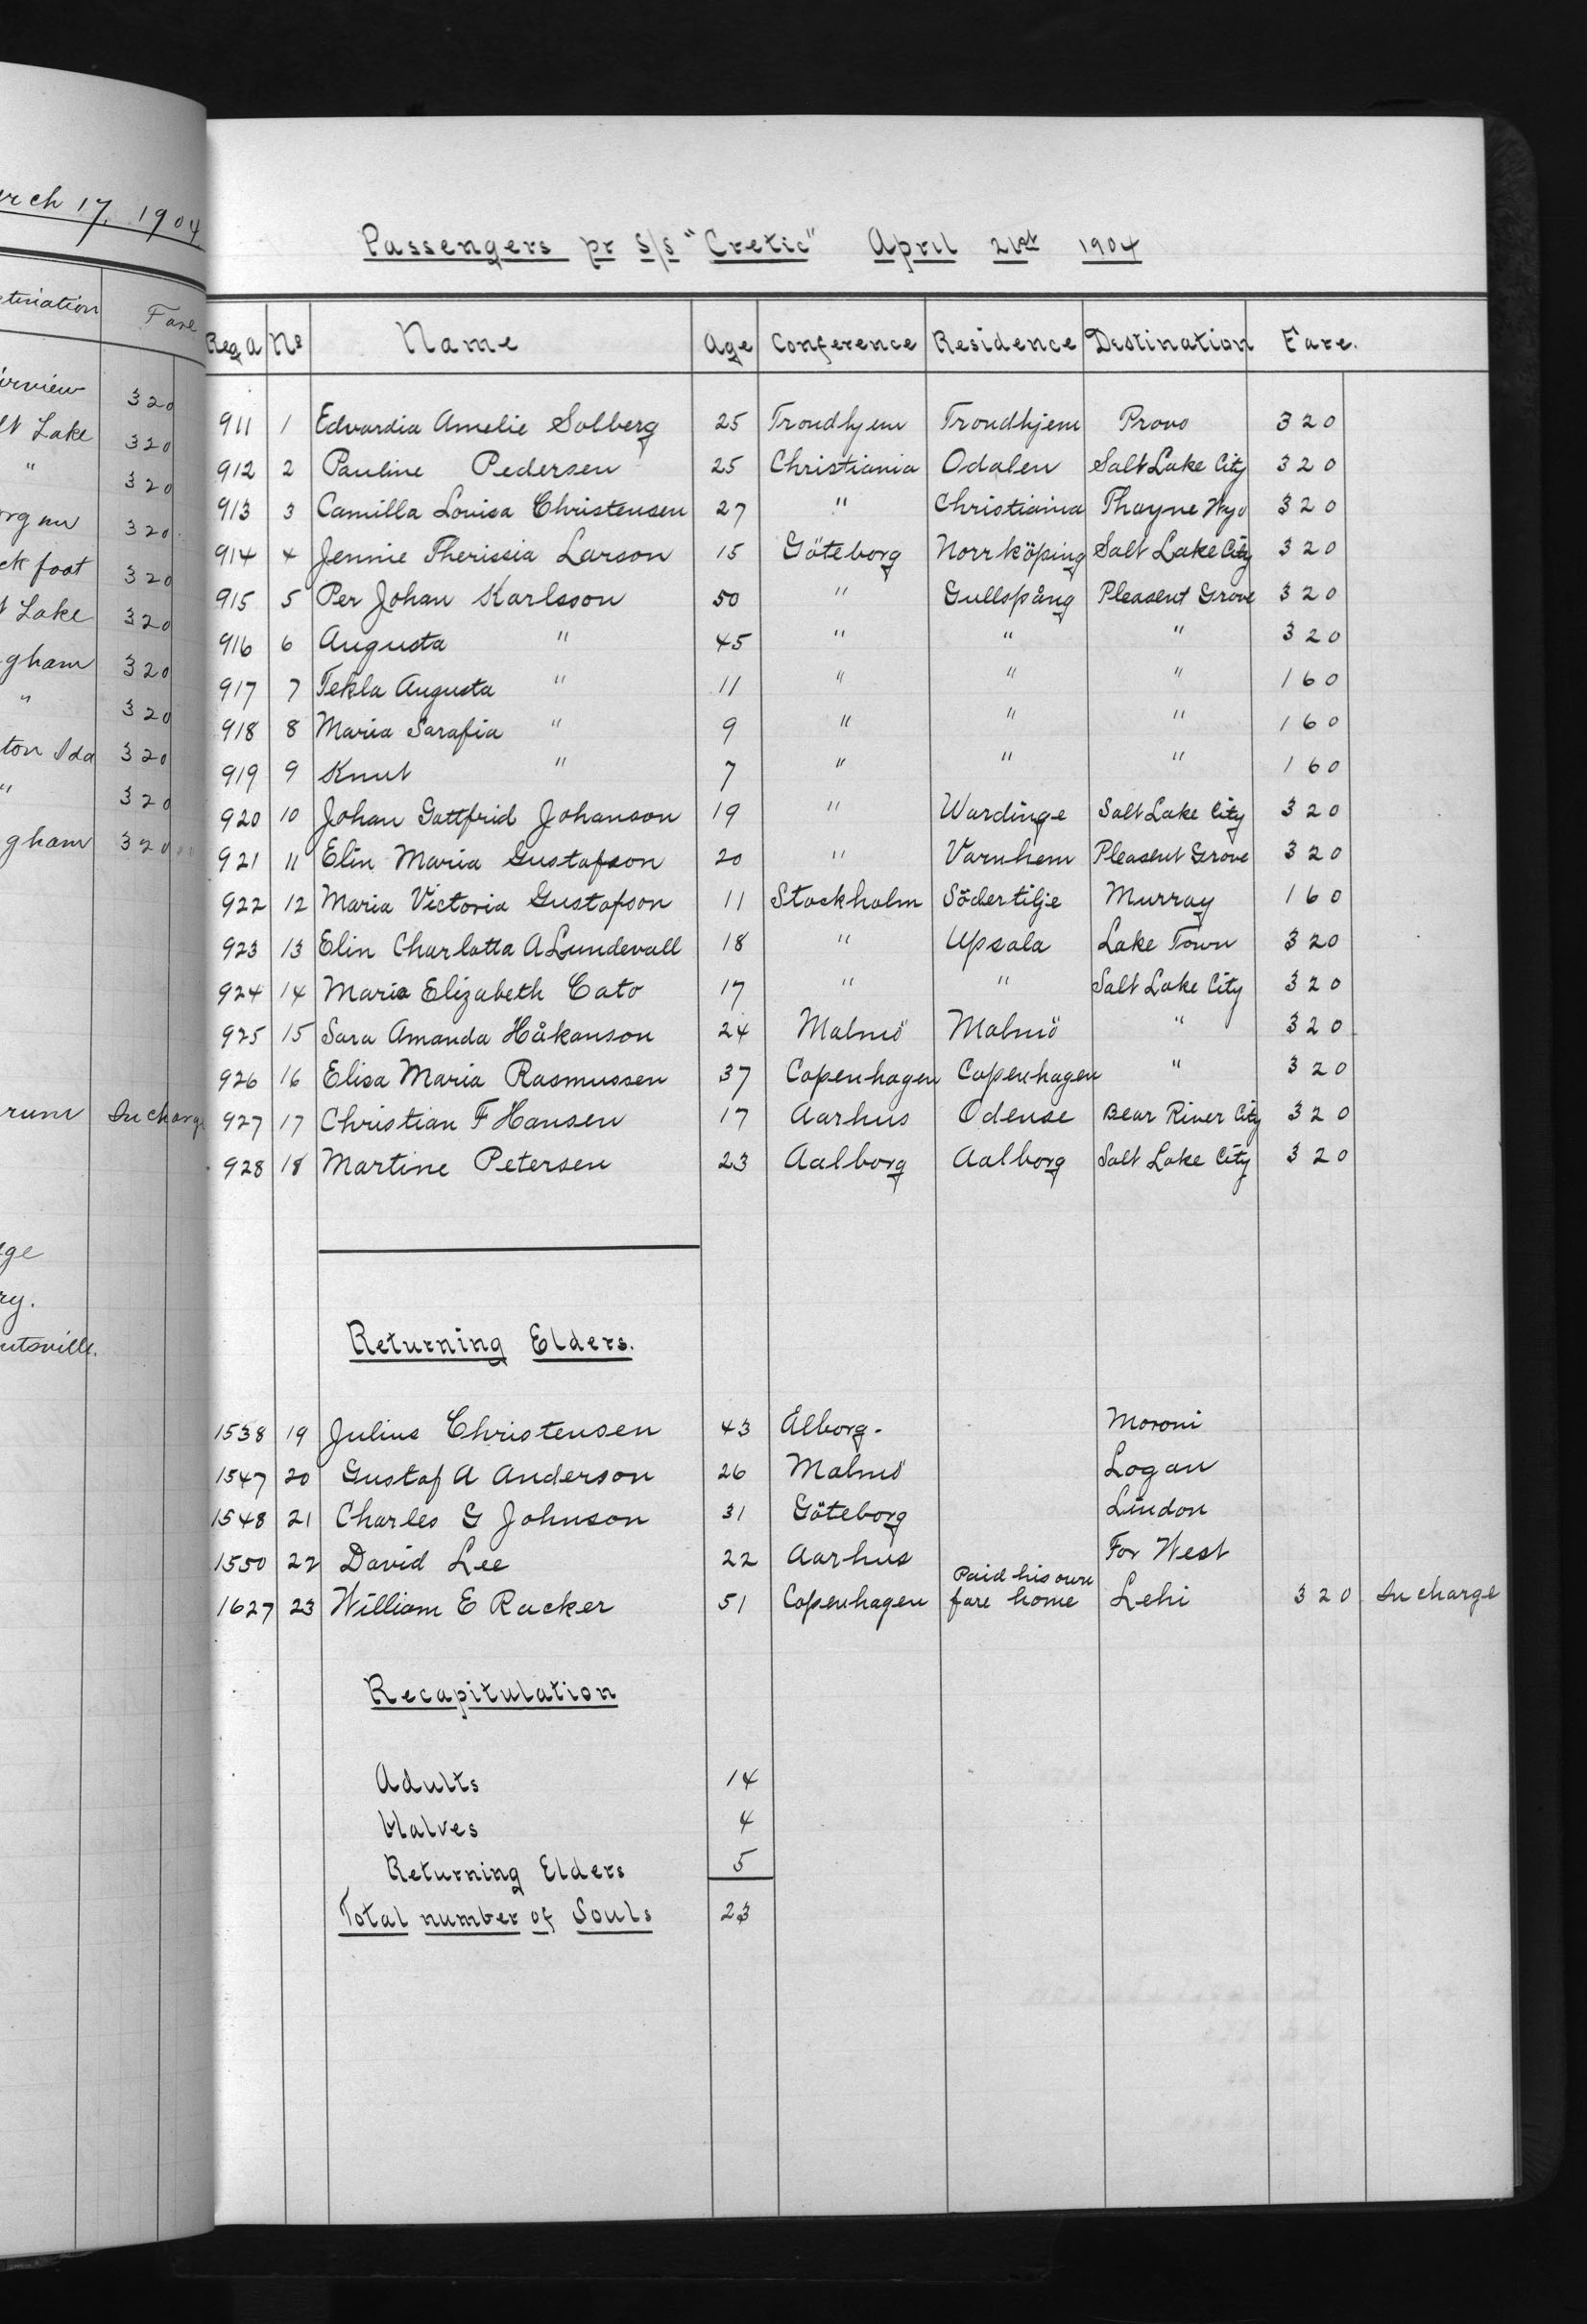 rch 17, 1904
tination Fare
irview 320
lt Lake 320
" 320
320
ck foot 320
t Lake 320
gham 320
" 320
ton Ida 320
" 320
gham 320
rum In charg
ge
ry.
ntsville.
Passengers pr S/S "Cretic" April 21st 1904
Reg A No Name Age Conference Residence Destination Fare.
911 1 Edvardia Amelie Solberg 25 Trondhjem Trondhjem Provo 320
912 2 Pauline Pedersen 25 Christiania Odalen Salt Lake City 320
913 3 Camilla Louisa Christensen 27 " Christiania Thayne Wyo 320
914 4 Jennie Therissia Larson 15 Göteborg Norrköping Salt Lake City 320
915 5 Per Johan Karlsson 50 " Gullspång Pleasent Grove 320
916 6 Augusta " 45 " " " 320
917 7 Tekla Augusta " 11 " " " 160
918 8 Maria Sarafia " 9 " " " 160
919 9 Knut " 7 " " " 160
920 10 Johan Gottfrid Johanson 19 " Wardinge Salt Lake City 320
921 11 Elin Maria Gustafson 20 " Varnhem Pleasent Grove 320
922 12 Maria Victoria Gustafson 11 Stockholm Södertilje Murray 160
923 13 Elin Charlotta A Lundevall 18 " Upsala Lake Town 320
924 14 Maria Elizabeth Cato 17 " " Salt Lake City 320
925 15 Sara Amanda Håkanson 24 Malmö Malmö " 320
926 16 Elisa Maria Rasmussen 37 Copenhagen Copenhagen " 320
927 17 Christian F Hansen 17 Aarhus Odense Bear River City 320
928 18 Martine Petersen 23 Aalborg Aalborg Salt Lake City 320
Returning Elders.
1538 19 Julius Christensen 43 Alborg. Moroni
1547 20 Gustaf A Anderson 26 Malmö Logan
1548 21 Charles G Johnson 31 Göteborg Lindon
1550 22 David Lee 22 Aarhus Fox West
1627 23 William E Racker 51 Copenhagen Paid his own fare home Lehi 320 In charge
Recapitulation
Adults 14
Halves 4
Returning Elders 5
Total number of Souls 23